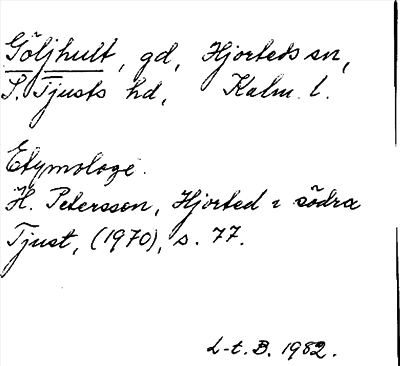 Göljhult, gd, Hjorteds sn,
S. Tjusts hd, Kalm. l.
Etymologi.
H. Petersson, Hjorted i södra
Tjust, (1970), s. 77.
L-t. B. 1982.